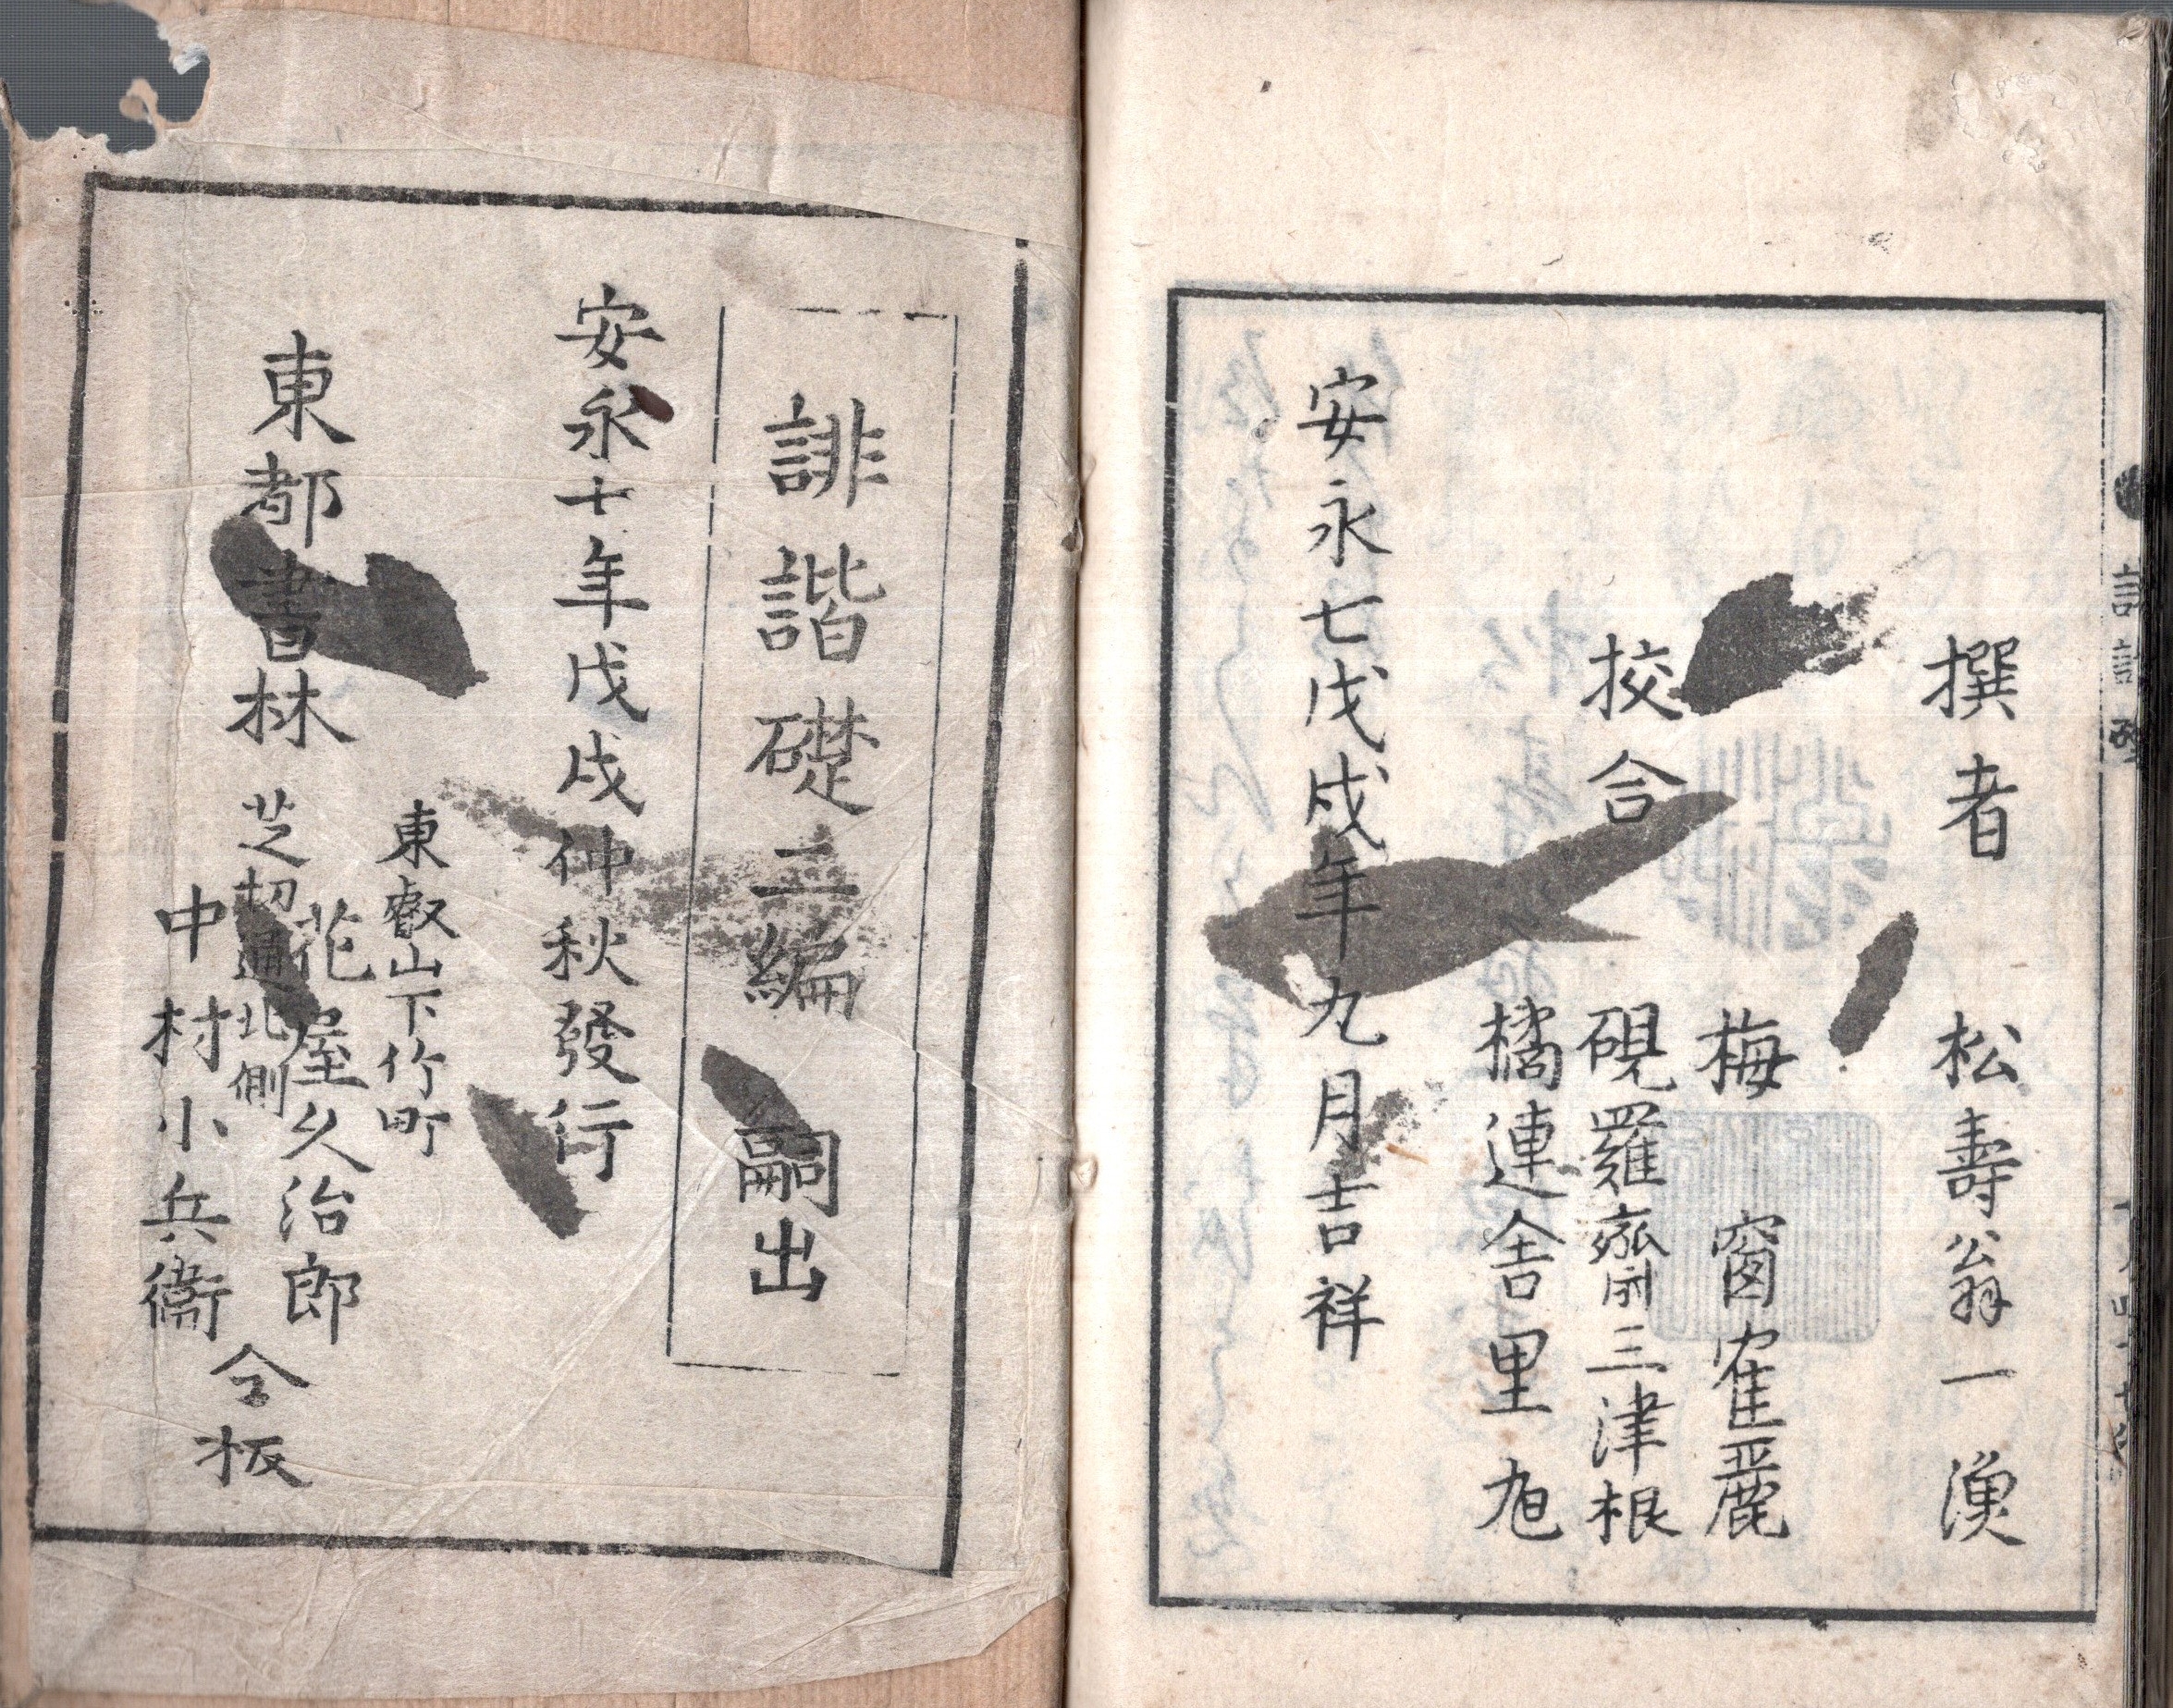 撰者　松壽翁一漁
梅窗隺麗
挍合　硯羅齋三津根
橘連舎里旭
安永七戊戌年九月吉祥
誹諧礎二編　嗣出
安永十年戊戌仲秋發行
東都書林
東叡山下竹町
花屋久治郎
芝切通北側
中村小兵衞
仝板